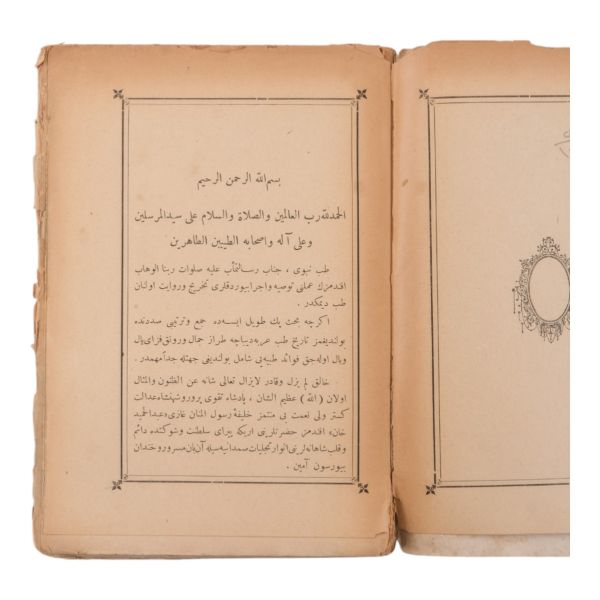 بسم الله الرحمن الرحيم
الحمدلله رب العالمين والصلاة والسلام على سيدالمرسلين
وعلى آله واصحابه الطيبين الطاهرين
طب نبوى ، جناب رسالتمآب عليه صلوات ربنا الوهاب
افندمزك عملنى توصيه واجرا بيوردقلرى تخريج وروايت اولنان
طب ديمكدر .
اكرچه بحث پك طويل ايسه ده جمع وترتيبى صددنده
بولنديغمز تاريخ طب عربه ديباچه طراز جمال ورونق فزاى بال
وبال اوله جق فوائد طبيه يى شامل بولنديغى جهتله جداً مهمدر .
خالق لم يزل وقادر لايزال تعالى شانه عن الظنون والمثال
اولان ( الله ) عظيم الشان ، پادشاه تقوى پرور وشهنشاه عدالت
كستر ولى نعمت بى منتمز خليفهٔ رسول المنان غازى «عبدالحميد
خان» افندمز حضرتلرينى اريكه پيراى سلطنت وشوكتنده دائم
وقلب شاهانه لرينى انوار تجليات صمدانيه سيله آن بان مسرور وخندان
بيورسون آمين .